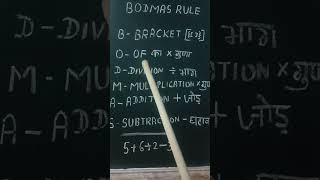 BODMAS RULE
B- BRACKET [{( )}]
O- OF का × गुणा
D- DIVISION ÷ भाग
M- MULTIPLICATION × गुणा
A- ADDITION + जोड़
S- SUBTRACTION - घटाव
5+6÷2-3